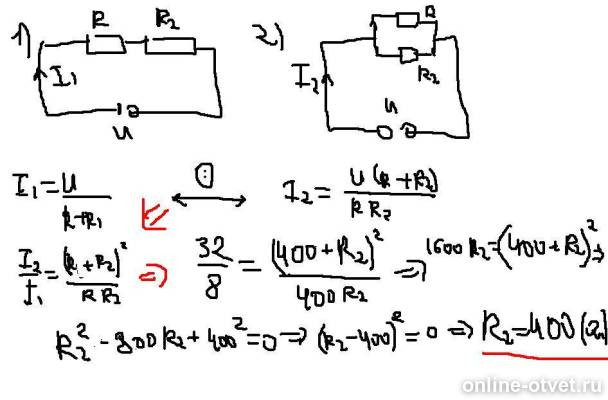 1) R R₂ 2) R
I₁ I₂ R₂
u u
I₁ = u / R+R₁ I₂ = u(R+R₂) / RR₂
I₂/I₁ = (R₁+R₂)² / RR₂ ⇒ 32/8 = (400+R₂)² / 400R₂ ⇒ 1600R₂=(400+R₂)² ⇒
R₂² - 800R₂ + 400² = 0 ⇒ (R₂-400)² = 0 ⇒ R₂=400
online-otvet.ru